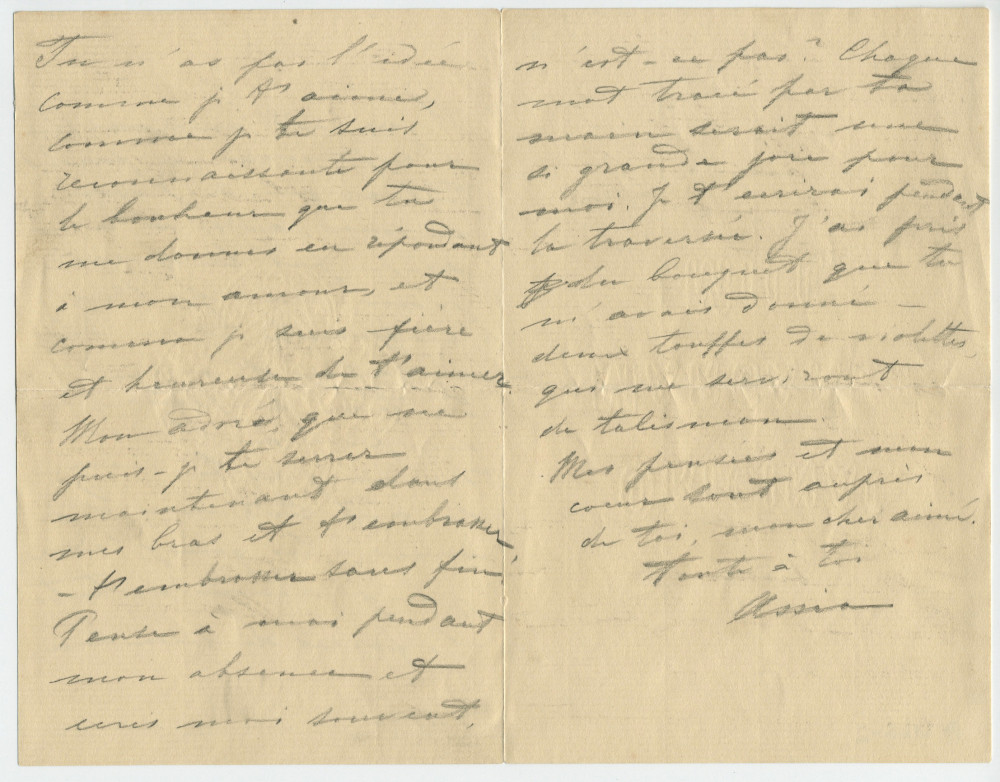 Tu n'as pas l'idée
comme je t'aime,
comme je te suis
reconnaissante pour
le bonheur que tu
me donnes en répondant
à mon amour, et
comme je suis fière
et heureuse de t'aimer.
Mon adoré, que ne
puis-je te serrer
maintenant dans
mes bras et t'embrasser,
- t'embrasser sans fin!
Pense à moi pendant
mon absence et
ecris moi souvent,
n'est-ce pas? Chaque
mot tracé par ta
main serait une
si grande joie pour
moi. Je t'ecrirai pendant
la traversée. J'ai pris
du bouquet que tu
m'avais donné -
deux touffes de violettes,
qui me serviront
de talisman.
Mes pensées et mon
coeur sont auprès
de toi, mon cher aimé.
Toute à toi
Assia